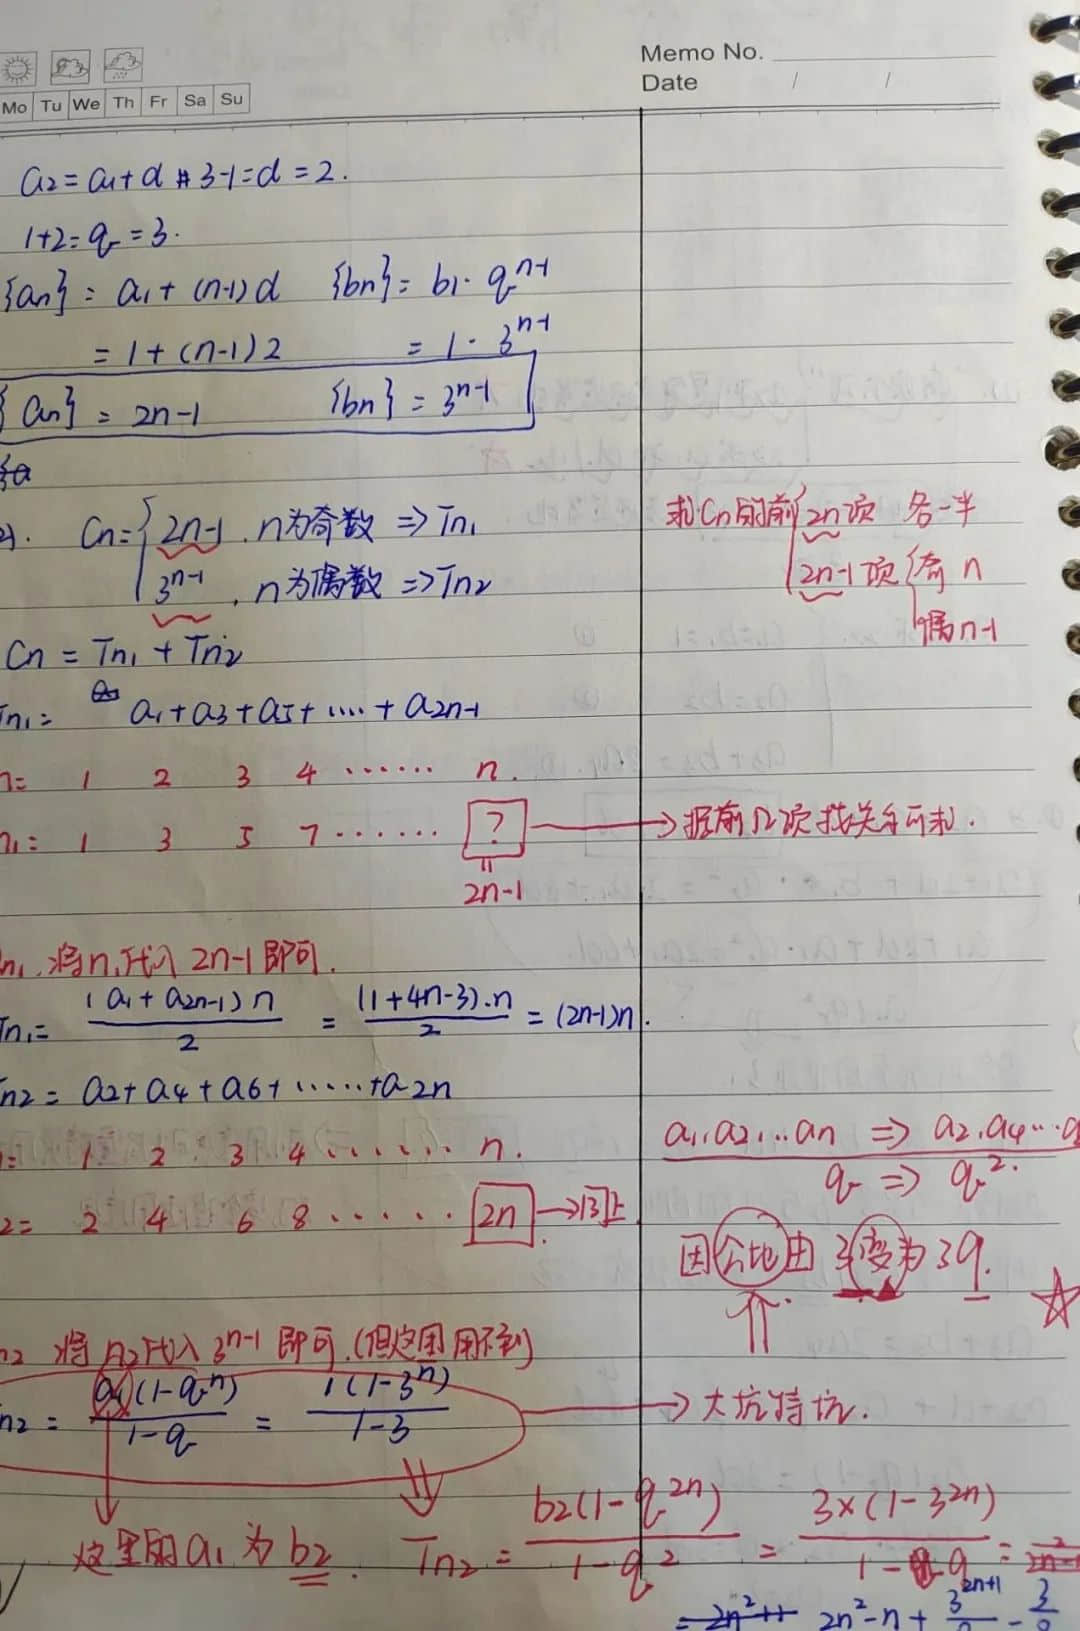 Memo No.
Date / /
Mo Tu We Th Fr Sa Su
a2=a1+d 3-1=d=2.
1+2=q=3.
{an}=a1+(n-1)d {bn}=b1·q^n-1
=1+(n-1)2 =1·3^n-1
{an}=2n-1 {bn}=3^n-1
Cn={2n-1, n为奇数 => Tn1
3^n-1, n为偶数 => Tn2
求Cn的前{2n项 各一半
2n-1项{奇n
偶n-1
Cn=Tn1+Tn2
Tn1= a1+a3+a5+....+a2n-1
n= 1 2 3 4 ...... n.
n1= 1 3 5 7 ...... ? → 据前几项找关系可求.
=
2n-1
n1.将n1代入2n-1即可.
Tn1= (a1+a2n-1)n/2 = (1+4n-3).n/2 = (2n-1)n.
Tn2=a2+a4+a6+......+a2n
n= 1 2 3 4 ...... n.
n2= 2 4 6 8 ...... 2n →同上
a1,a2,...an => a2,a4...a
q => q^2.
因公比由3变为
n2 将n2代入3^n-1即可.(但这里用不到)
Tn2= a1(1-q^n)/1-q = 1(1-3^n)/1-3 → 大坑特坑.
这里的a1为b2. Tn2= b2(1-q^2n)/1-q^2 = 3×(1-3^2n)/1-9 =
2n^2-n+